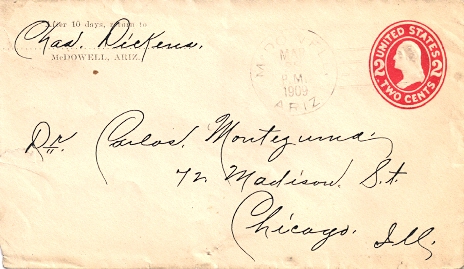 After 10 days, return to
Chas. Dickens.
McDOWELL, ARIZ.
MAR
P.M.
1909
ARIZ
UNITED STATES
2 2
TWO CENTS
Dr. Carlos. Montezuma.
72 Madison. St.
Chicago. Ill.